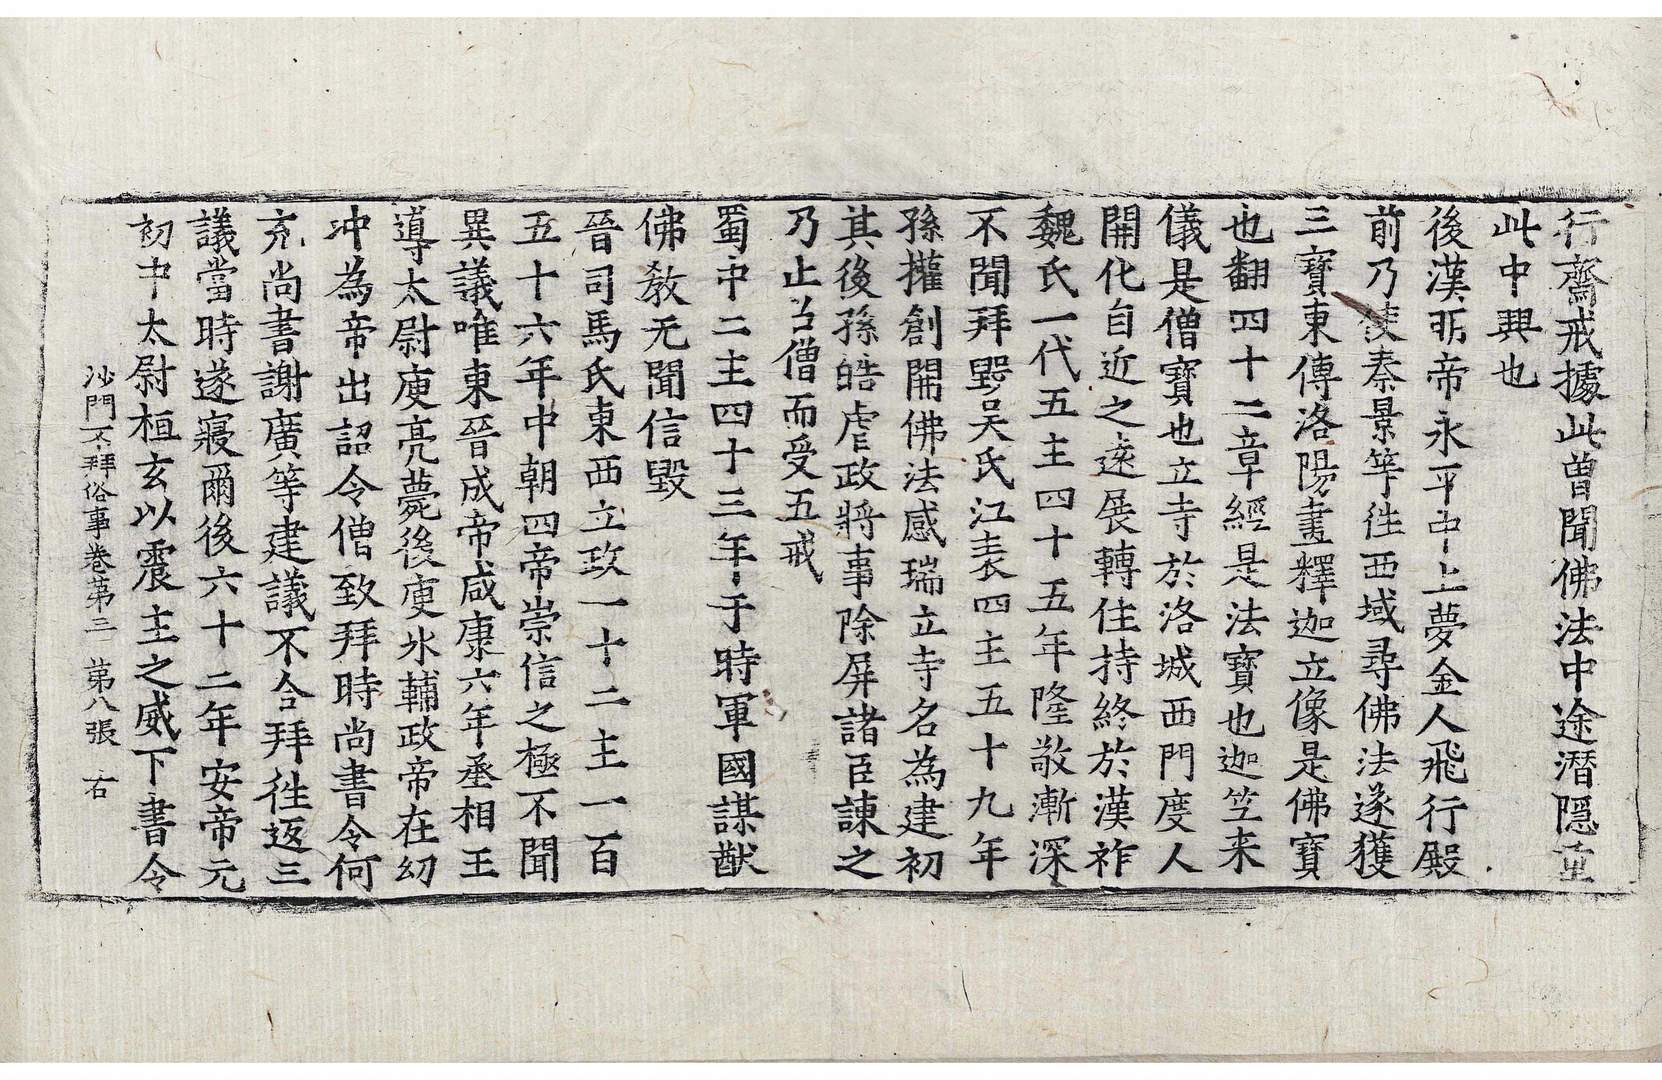 行齋戒據此曽聞佛法中途潛隱重
此中興也
後漢明帝永平中上夢金人飛行殿
前乃使秦景等徃西域尋佛法遂獲
三寶東傳洛陽畫釋迦立像是佛寶
也翻四十二章經是法寶也迦竺来
儀是僧寶也立寺於洛城西門度人
開化自近之遠展轉住持終於漢祚
魏氏一代五主四十五年隆敬漸深
不聞拜毀吴氏江表四主五十九年
孫權創開佛法感瑞立寺名為建初
其後孫皓虐政將事除屏諸臣諫之
乃止召僧而受五戒
蜀中二主四十三年于時軍國謀猷
佛教无聞信毀
晉司馬氏東西立政一十二主一百
五十六年中朝四帝崇信之極不聞
異議唯東晉成帝咸康六年丞相王
導太尉庾亮薨後庾氷輔政帝在幼
冲為帝出詔令僧致拜時尚書令何
充尚書謝廣等建議不合拜徃返三
議當時遂寢爾後六十二年安帝元
初中太尉桓玄以震主之威下書令
沙門不拜俗事卷第三 第八張 右